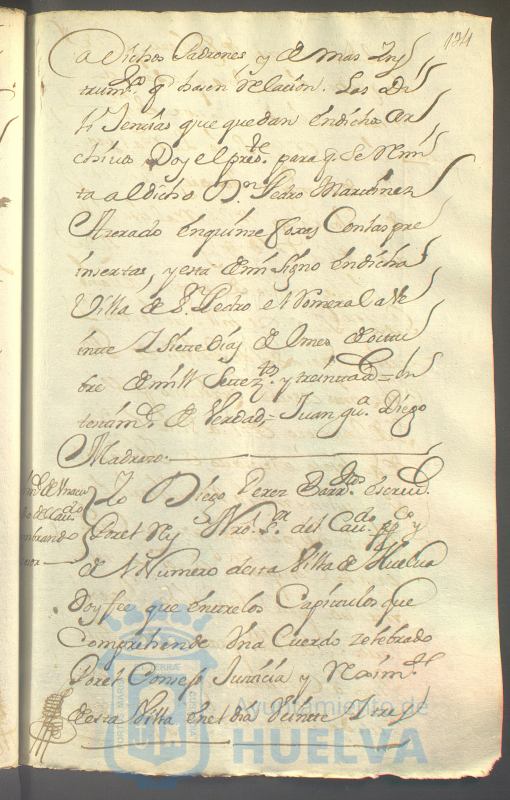 134
a dichos Padrones y demas Yns
trumtos. q hasen Relacion. Las Di
lijencias que quedan en dicho Ar
chivo Doy el preste. para q. Se Remi
ta al dicho Dn. Pedro Martinez
en quinze foxas Con las pre
insertas, y esta de mi Signo en dicha
Villa de Sn. Pedro el a Ve
inte Y Siete Dias de el mes de octu
bre de mill Setezos. y treinta as = En
testimo. de Verdad,= Juan ga. Diego
Madrazo.
Yo Diego Perez Barrtos escrivo.
Por el Rey Nro. Sr. del Cavdo ppco y
de el Numero de esta Villa de Huelva
Doy fee que entre los Capitulos que
Comprehende Un a Cuerdo zelebrado
Por el Consejo Justicia y Reximto
de esta Villa en el dia Veinte Y tres
Ayuntamiento de
HUELVA